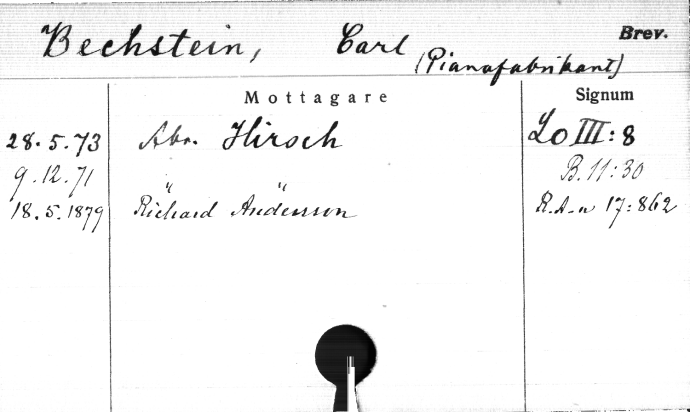 Bechstein, Carl Brev.
(Pianofabrikant)
Mottagare Signum
28.5.73 Abr. Hirsch Lo III:8
9.12.71 " " B.11:30
18.5.1879 Richard Andersson R.A-n 17:862